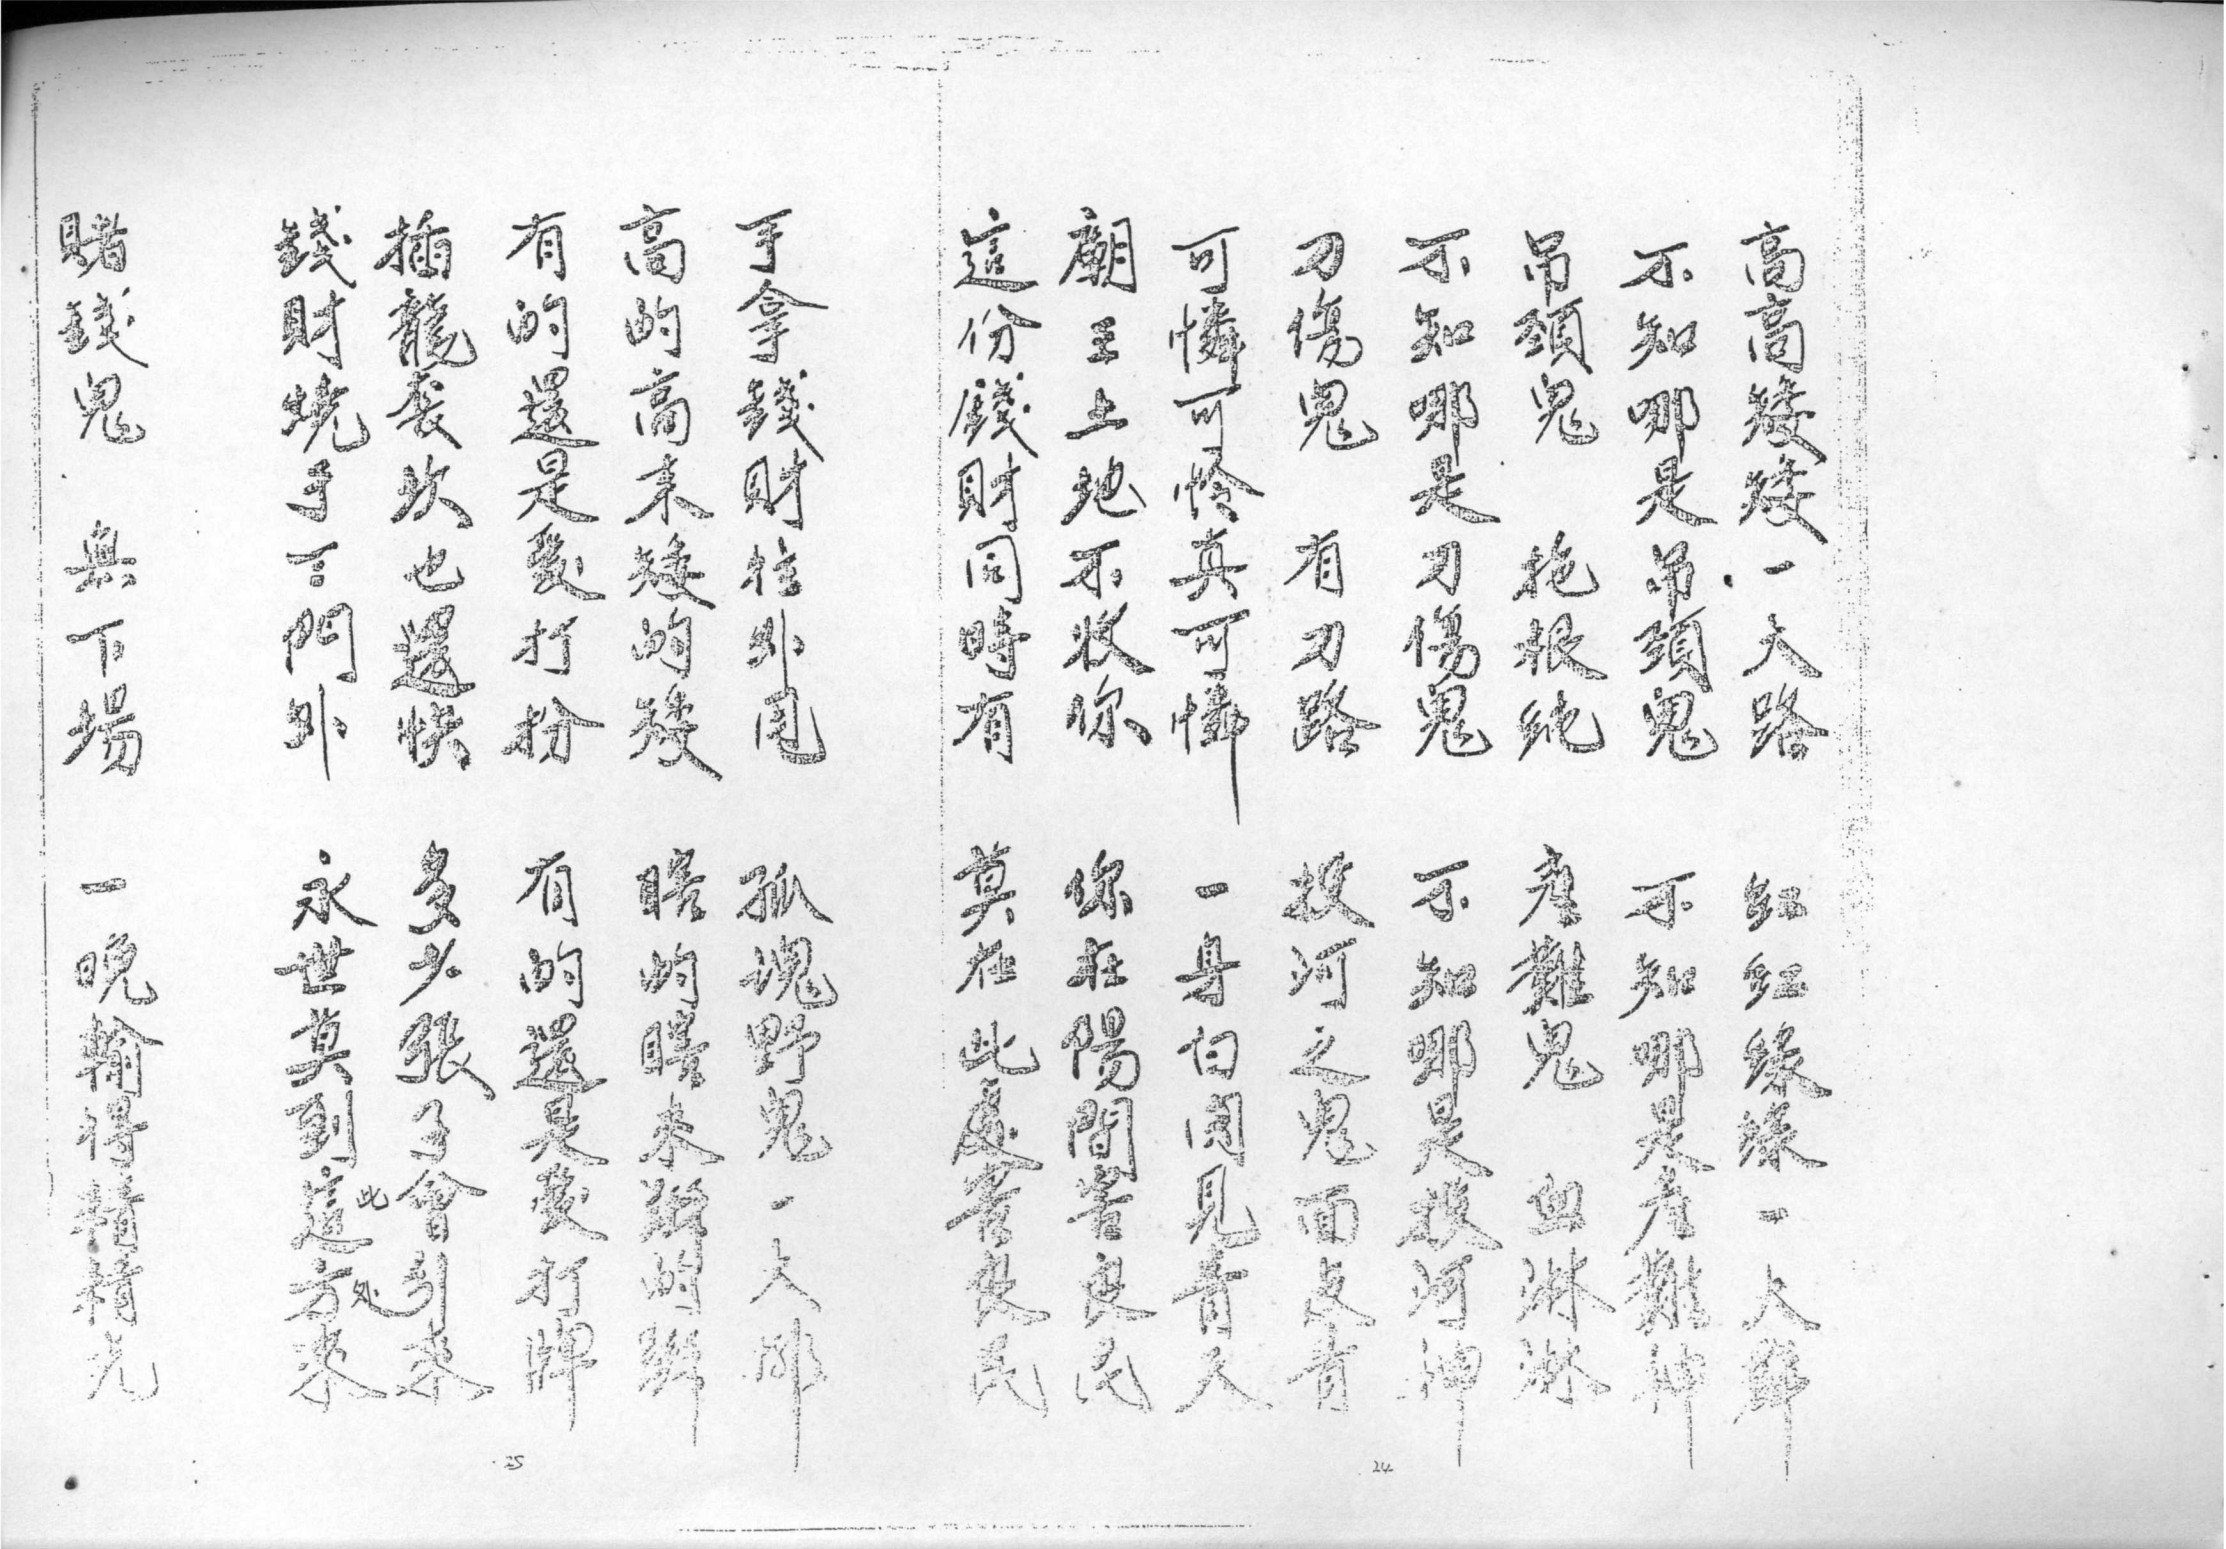 高高矮矮一大路 紅紅綠綠一大群
不知哪是吊頸鬼 不知哪是產難神
吊頸鬼 拖根繩 產難鬼 血淋淋
不知哪是刀傷鬼 不知哪是投河神
刀傷鬼 有刀路 投河之鬼面皮青
可憐可怜真可憐 一身白肉見青天
廟王土地不收你 你在陽間害良民
這份錢財同時有 莫在此處害良民
24
手拿錢財往外甩 孤魂野鬼一大幫
高的高來矮的矮 瞎的瞎來 的
有的還是愛打扮 有的還是愛打牌
插龍袋坎也還快 多少張子會引來
錢財燒手下門外 永世莫到這方來
此处
25
賭錢鬼 無下場 一晚輸得精精光